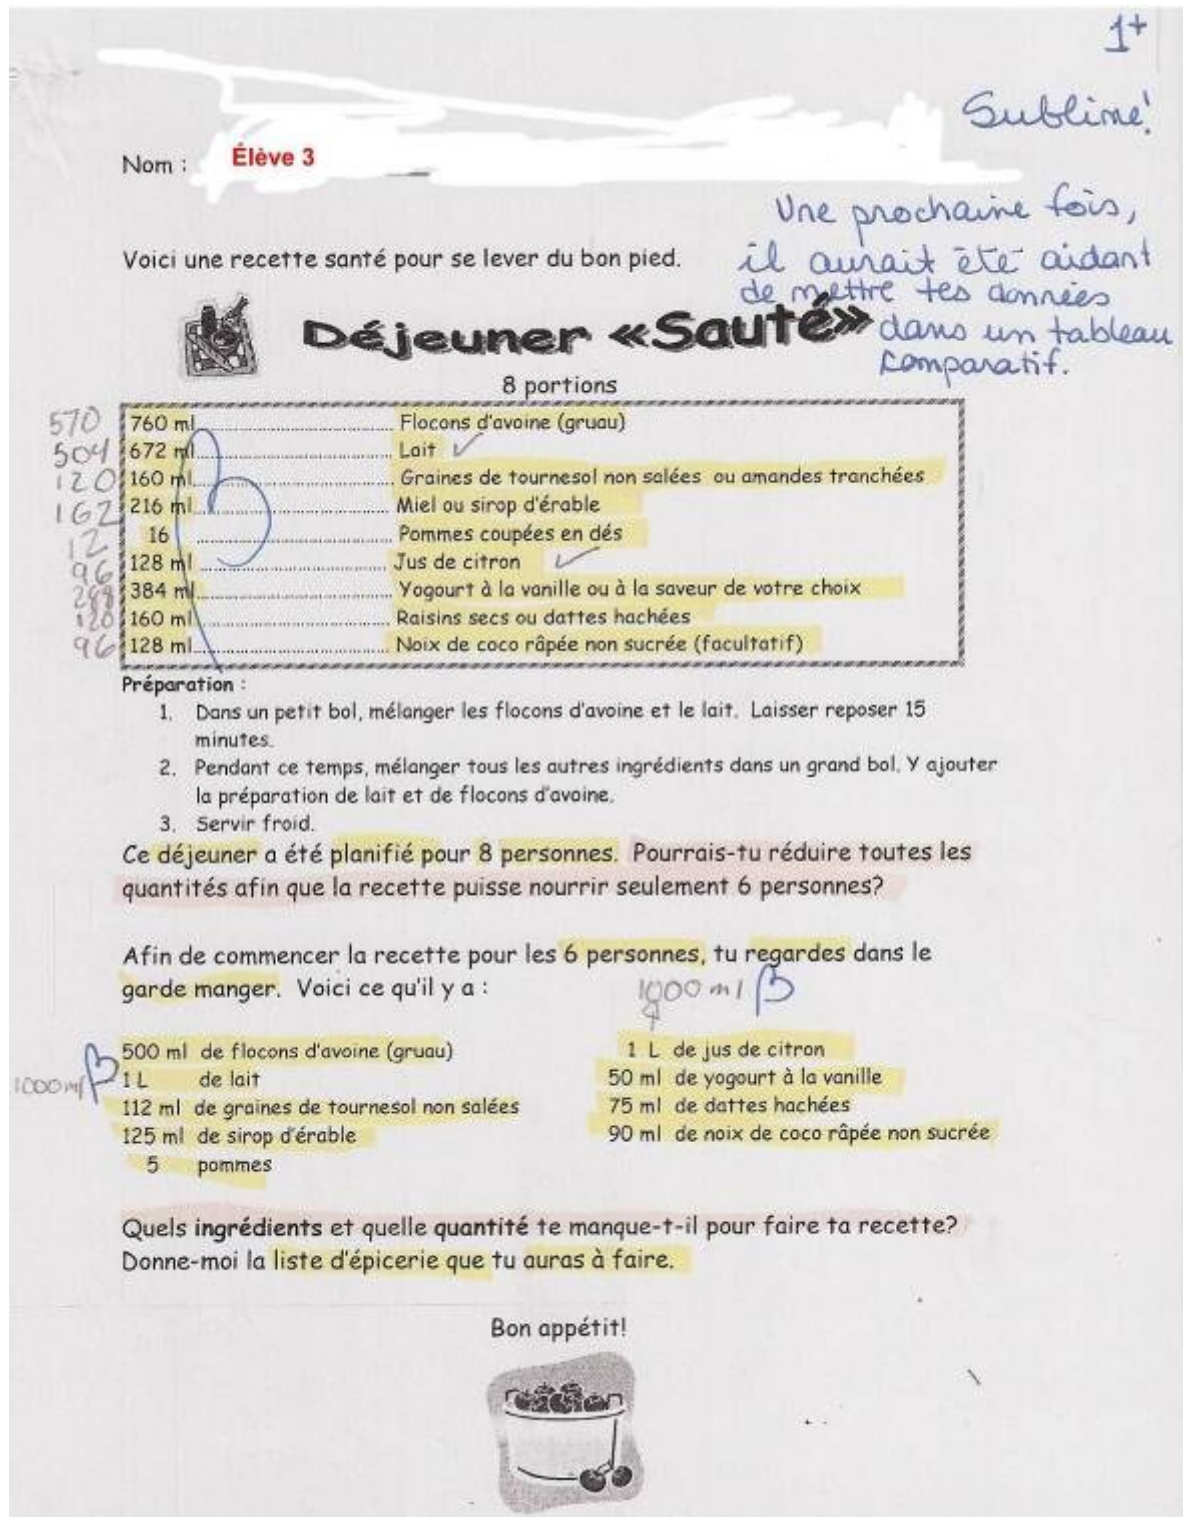 1+
Sublime!
Nom : Élève 3
Une prochaine fois,
il aurait été aidant
de mettre tes données
dans un tableau
comparatif.
Voici une recette santé pour se lever du bon pied.
Déjeuner «Sauté»
8 portions
570 760 ml Flocons d'avoine (gruau)
504 672 ml Lait ✓
120 160 ml Graines de tournesol non salées ou amandes tranchées
162 216 ml Miel ou sirop d'érable
12 16 Pommes coupées en dés
96 128 ml Jus de citron ✓
288 384 ml Yogourt à la vanille ou à la saveur de votre choix
120 160 ml Raisins secs ou dattes hachées
96 128 ml Noix de coco râpée non sucrée (facultatif)
Préparation :
1. Dans un petit bol, mélanger les flocons d'avoine et le lait. Laisser reposer 15
minutes.
2. Pendant ce temps, mélanger tous les autres ingrédients dans un grand bol. Y ajouter
la préparation de lait et de flocons d'avoine.
3. Servir froid.
Ce déjeuner a été planifié pour 8 personnes. Pourrais-tu réduire toutes les
quantités afin que la recette puisse nourrir seulement 6 personnes?
Afin de commencer la recette pour les 6 personnes, tu regardes dans le
garde manger. Voici ce qu'il y a :
1000 ml
500 ml de flocons d'avoine (gruau)
1000 ml 1 L de lait
112 ml de graines de tournesol non salées
125 ml de sirop d'érable
5 pommes
1 L de jus de citron
50 ml de yogourt à la vanille
75 ml de dattes hachées
90 ml de noix de coco râpée non sucrée
Quels ingrédients et quelle quantité te manque-t-il pour faire ta recette?
Donne-moi la liste d'épicerie que tu auras à faire.
Bon appétit!